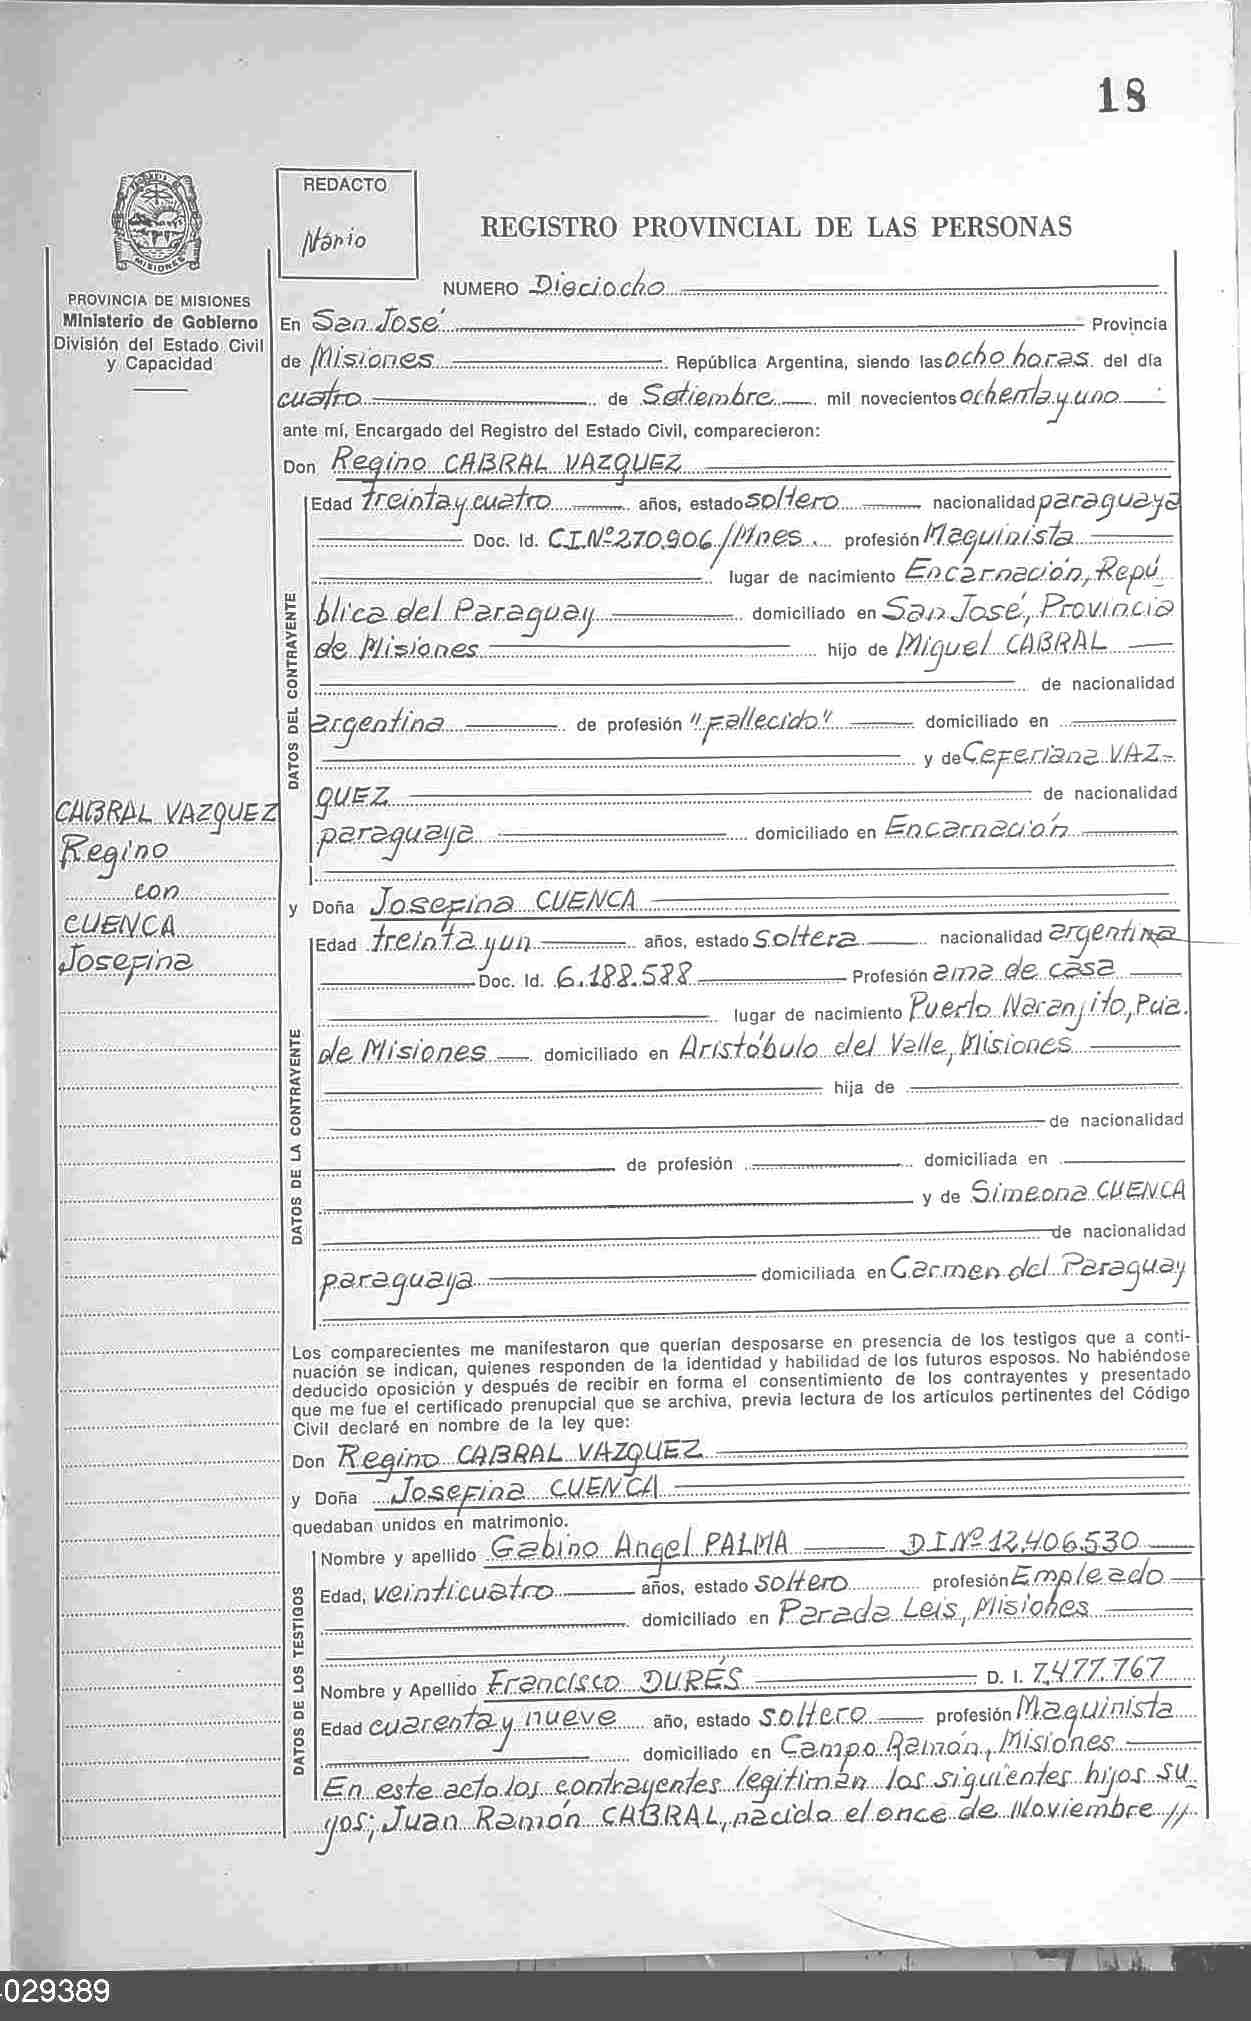 18
REDACTO
Nario
REGISTRO PROVINCIAL DE LAS PERSONAS
MISIONES
PROVINCIA DE MISIONES
Ministerio de Gobierno
División del Estado Civil
y Capacidad
CABRAL VAZQUEZ
Regino
con
CUENCA
Josefina
NUMERO Dieciocho
En San José Provincia
de Misiones República Argentina, siendo las ocho horas del día
cuatro de Setiembre mil novecientos ochenta y uno
ante mí, Encargado del Registro del Estado Civil, comparecieron:
Don Regino CABRAL VAZQUEZ
DATOS DEL CONTRAYENTE
Edad treinta y cuatro años, estado soltero nacionalidad paraguaya
Doc. Id. C.I.Nº270.906/Mnes. profesión Maquinista
lugar de nacimiento Encarnación, Repú
blica del Paraguay domiciliado en San José, Provincia
de Misiones hijo de Miguel CABRAL
de nacionalidad
argentina de profesión "Fallecido" domiciliado en
y de Ceferiana VAZ-
QUEZ de nacionalidad
paraguaya domiciliado en Encarnación
y Doña Josefina CUENCA
DATOS DE LA CONTRAYENTE
Edad treinta y un años, estado Soltera nacionalidad argentina
Doc. Id. 6.188.588 Profesión ama de casa
lugar de nacimiento Puerto Naranjito, Pcia.
de Misiones domiciliado en Aristóbulo del Valle, Misiones
hija de
de nacionalidad
de profesión domiciliada en
y de Simeona CUENCA
de nacionalidad
paraguaya domiciliada en Carmen del Paraguay
Los comparecientes me manifestaron que querían desposarse en presencia de los testigos que a conti-
nuación se indican, quienes responden de la identidad y habilidad de los futuros esposos. No habiéndose
deducido oposición y después de recibir en forma el consentimiento de los contrayentes y presentado
que me fue el certificado prenupcial que se archiva, previa lectura de los artículos pertinentes del Código
Civil declaré en nombre de la ley que:
Don Regino CABRAL VAZQUEZ
y Doña Josefina CUENCA
quedaban unidos en matrimonio.
DATOS DE LOS TESTIGOS
Nombre y apellido Gabino Angel PALMA D.I.Nº12.406.530
Edad, veinticuatro años, estado soltero profesión Empleado
domiciliado en Parada Leis, Misiones
Nombre y Apellido Francisco DURÉS D. I. 7.477.767
Edad cuarenta y nueve año, estado soltero profesión Maquinista
domiciliado en Campo Ramón, Misiones
En este acto los contrayentes legitiman los siguientes hijos su
yos; Juan Ramón CABRAL, nacido el once de Noviembre //
029389